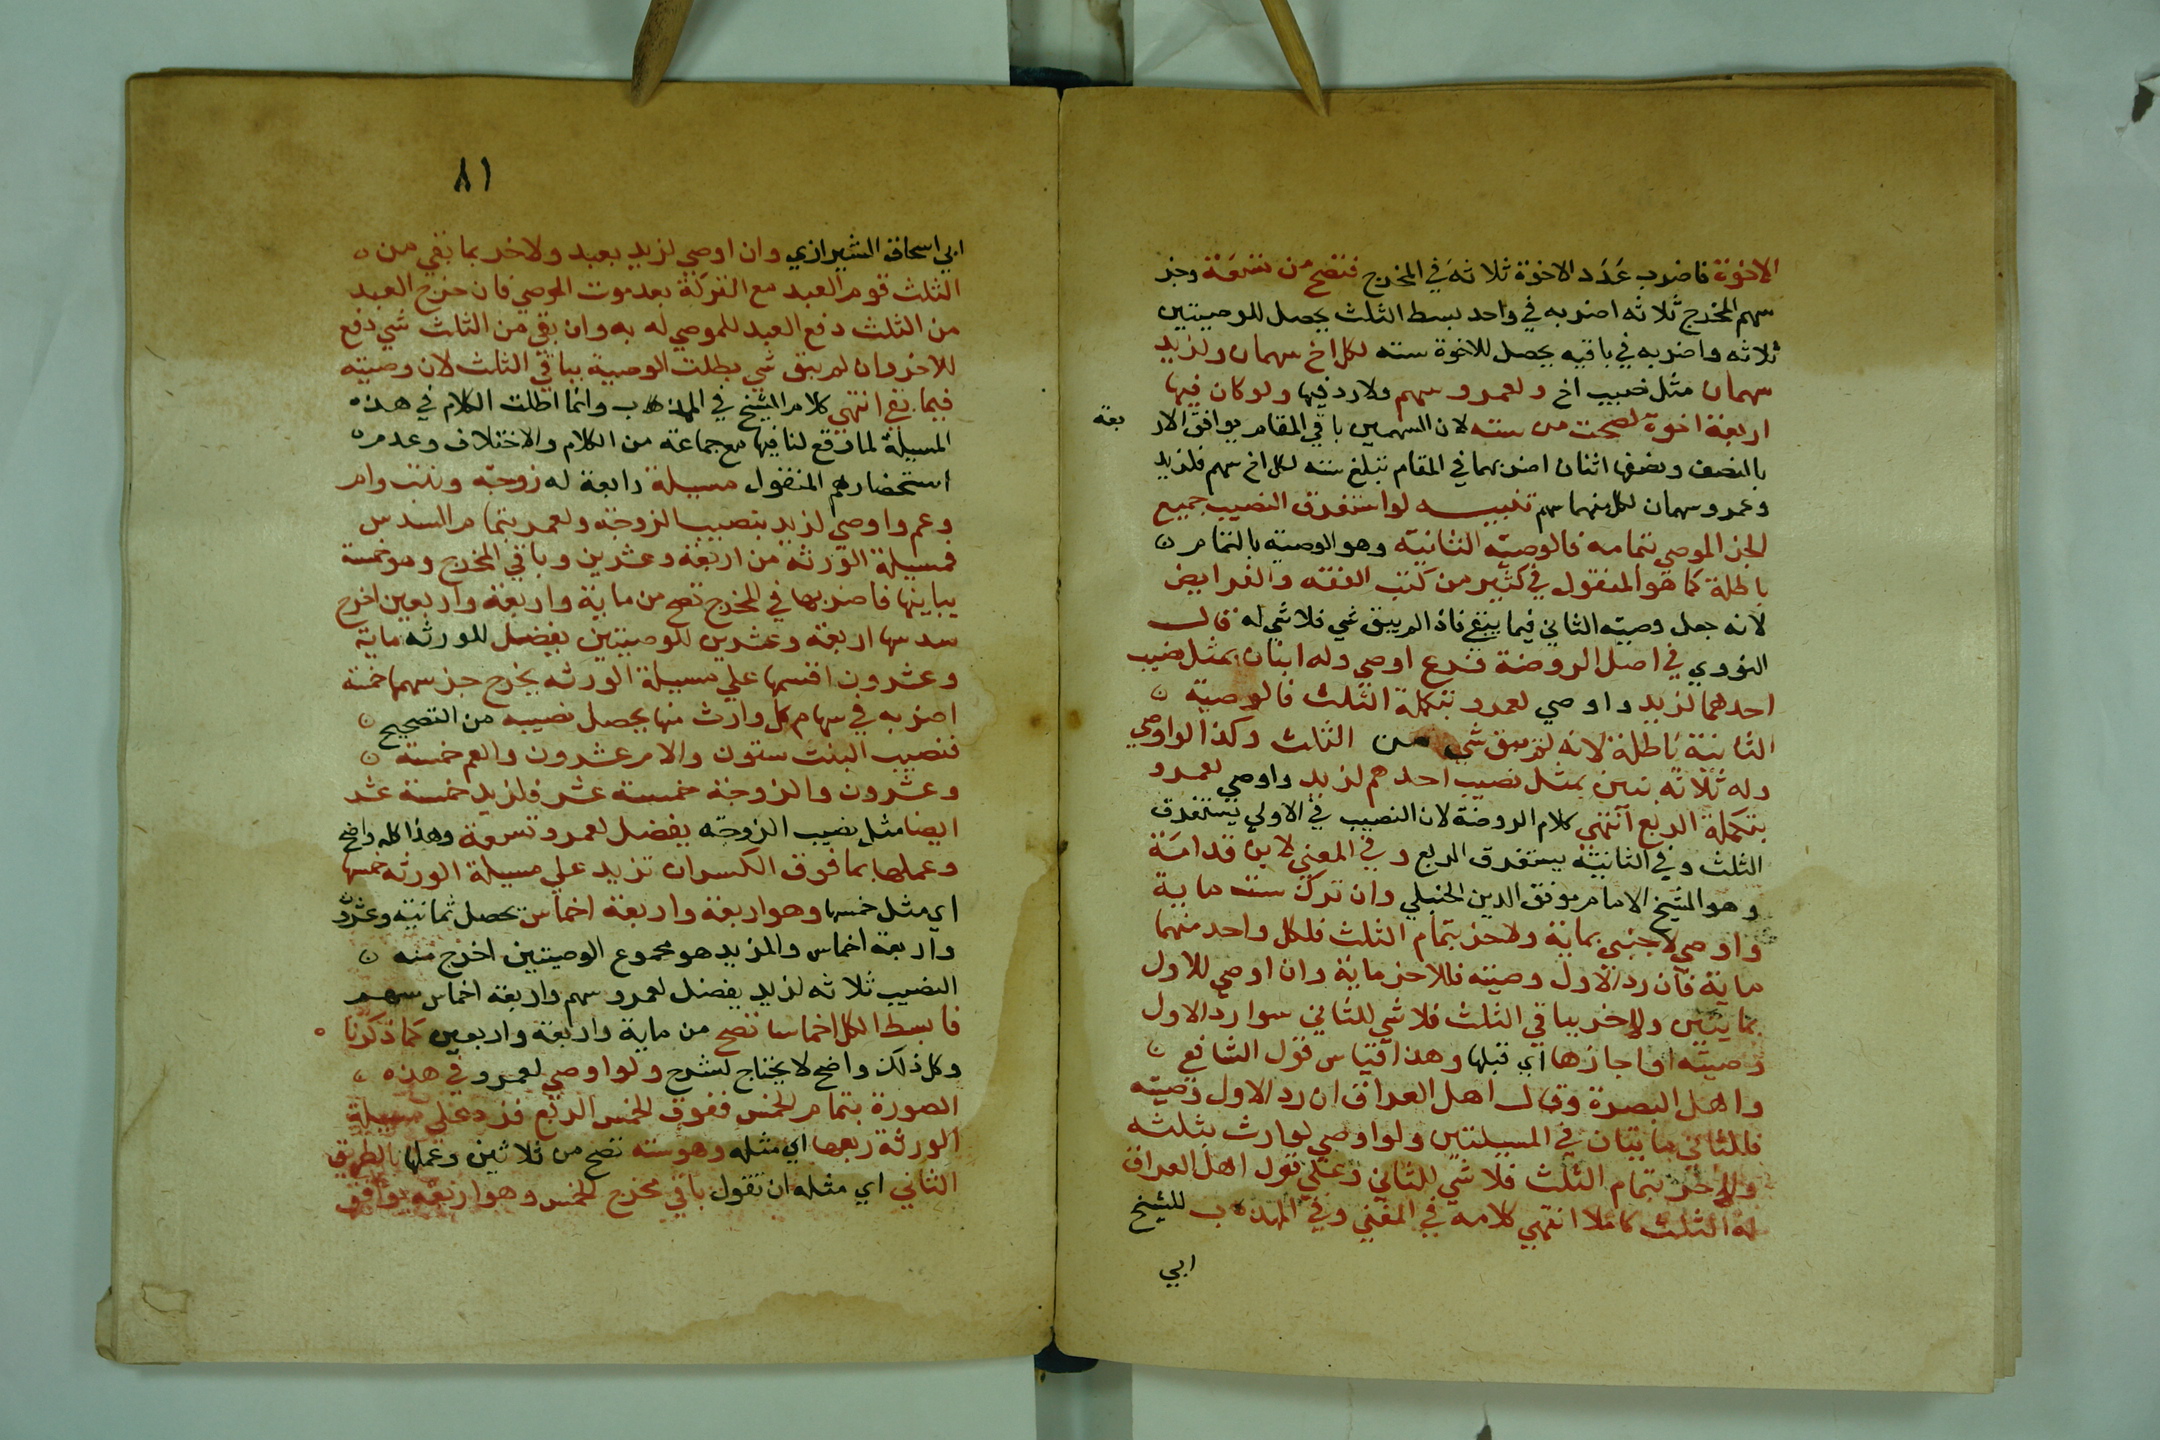 الاخوة فاضرب عدد الاخوة ثلاثة في المخرج فتصح من تسعة وجز
سهم المخرج ثلاثه اضربه في واحد بسط الثلث يحصل للوصيتين
ثلاثه واضربه في باقيه يحصل للاخوة سته لكل اخ سهمان ولزيد
سهمان مثل نصيب اخ ولعمرو سهم ولا رد فيها ولو كان فيها
اربعة اخوة لصحت من سته لان السهمين باقي المقام يوافق الار
بعة
بالنصف ونصفها اثنان اضربهما في المقام تبلغ سته لكل اخ سهم فلزيد
وعمرو سهمان لكل منهما سهم تنبيه لو استغرق النصيب جميع
الجز الموصي بتمامه فالوصيه الثانية وهو الوصية بالتمام
باطلة كما هو المنقول في كثير من كتب الفقه والفرايض
لانه جعل وصية الثاني فيما يبقي فاذا لم يبق شي فلا شي له قال
النووي في اصل الروضة فرع اوصي وله ابنان بمثل نصيب
احدهما لزيد واوصي لعمرو بتكملة الثلث فالوصية
الثانية باطلة لانه لم يبق شي من الثلث وكذا لو اوصي
وله ثلاثه بنين بمثل نصيب احدهم لزيد واوصي لعمرو
بتكملة الربع انتهي كلام الروضة لان النصيب في الاولي يستغرق
الثلث وفي الثانية يستغرق الربع وفي المغني لابن قدامة
وهو الشيخ الامام موفق الدين الحنبلي وان ترك ست ماية
واوصي لاجنبي بماية ولاخر بتمام الثلث فلكل واحد منهما
ماية فان رد الاول وصيته فللاخر ماية وان اوصي للاول
بمايتين وللاخر بباقي الثلث فلا شي للثاني سوا رد الاول
وصيته او اجازها اي قبلها وهذا قياس قول الشافعي
واهل البصرة وقال اهل العراق ان رد الاول وصيته
فللثاني مايتان في المسيلتين ولو اوصي لوارث بثلثه
وللاخر بتمام الثلث فلا شي للثاني وعلي قول اهل العراق
له الثلث كاملا انتهي كلامه في المغني وفي المهذب للشيخ
ابي
٨١
ابي اسحاق الشيرازي وان اوصي لزيد بعبد ولاخر بما بقي من
الثلث قوم العبد مع التركة بعد موت الموصي فان خرج العبد
من الثلث دفع العبد للموصي له به وان بقي من الثلث شي دفع
للاخر وان لم يبق شي بطلت الوصية بباقي الثلث لان وصيته
فيما بقي انتهي كلام الشيخ في المهذب وانما اطلت الكلام في هذه
المسيلة لما وقع لنا فيها مع جماعة من الكلام والاختلاف وعدم
استحضارهم المنقول مسيلة رابعة له زوجة وبنت وام
وعم واوصي لزيد بنصيب الزوجة ولعمرو بتمام السدس
فمسيلة الورثة من اربعة وعشرين وباقي المخرج وهو خمسة
يباينها فاضربها في المخرج تصح من ماية واربعة واربعين اخرج
سدسها اربعة وعشرين للوصيتين يفضل للورثه ماية
وعشرون اقسمها علي مسيلة الورثه يخرج جز سهمها خمسة
اضربه في سهام كل وارث منها يحصل نصيبه من التصحيح
فنصيب البنت ستون والام عشرون والعم خمسة
وعشرون والزوجة خمسة عشر فلزيد خمسة عشر
ايضا مثل نصيب الزوجه يفضل لعمرو تسعة وهذا كله واضح
وعملها بما فوق الكسر ان تزيد علي مسيلة الورثه خمسها
اي مثل خمسها وهو اربعة واربعة اخماس تحصل ثمانية وعشرون
واربعة اخماس والمزيد هو مجموع الوصيتين اخرج منه
النصيب ثلاثه لزيد يفضل لعمرو سهم واربعة اخماس سهم
فابسط الكل اخماسا تصح من ماية واربعة واربعين كما ذكرنا
وكل ذلك واضح لا يحتاج لشرح ولو اوصي لعمرو في هذه
الصورة بتمام الخمس ففوق الخمس الربع فزد علي مسيلة
الورثة ربعها اي مثله وهو سته تصح من ثلاثين وعملها بالطريق
الثاني اي مثله ان تقول باقي مخرج الخمس وهو اربعة يوافق